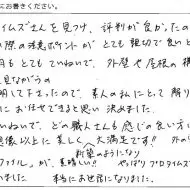 にお書きください。
イムズさんを見つけ、評判が良かったの
際の決定ポイントが とても親切で良いと
月もとてもていねいで、外壁や屋根の構
見ながらの
明して下さったので、素人の私にとって解り
にお任せできると思い決めました。
いねいで、どの職人さんも感じの良い方に
想像以上に美しく大満足です!
新築のようになり
ファイル」が、素晴しい!! やっぱりプロタイムズ
ました 本当にお世話になりました。